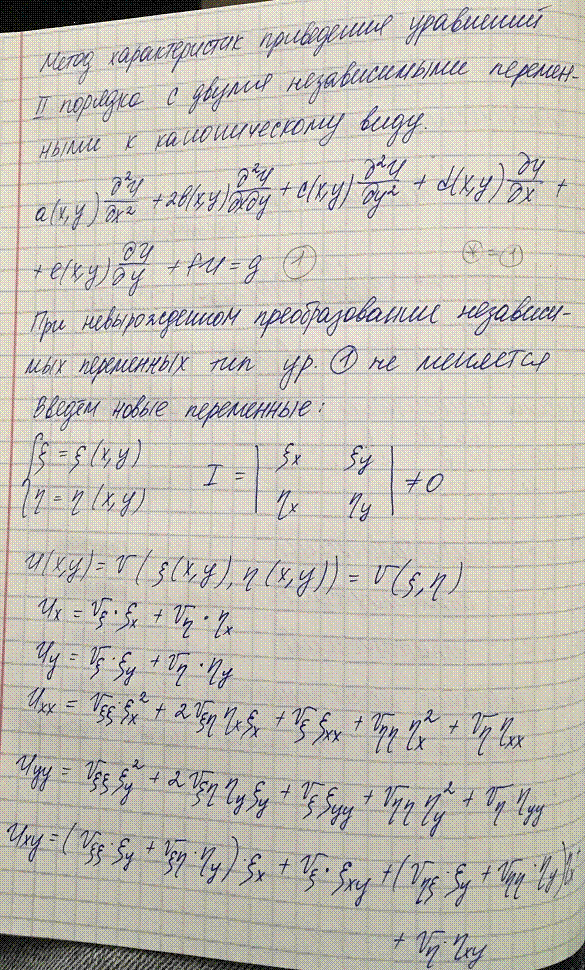 Метод характеристик приведения уравнений
II порядка с двумя независимыми перемен-
ными к каноническому виду.
a(x,y) ∂²u/∂x² + 2b(x,y) ∂²u/∂x∂y + c(x,y) ∂²u/∂y² + d(x,y) ∂u/∂x +
+ e(x,y) ∂u/∂y + fu = g (1) (*) = (1)
При невырожденном преобразовании независи-
мых переменных тип ур. (1) не меняется
Введём новые переменные:
{ξ = ξ(x,y) I = | ξx ξy | ≠ 0
{η = η(x,y) | ηx ηy |
u(x,y) = v(ξ(x,y), η(x,y)) = v(ξ,η)
ux = vξ · ξx + vη · ηx
uy = vξ · ξy + vη · ηy
uxx = vξξ ξx² + 2vξη ηx ξx + vξ ξxx + vηη ηx² + vη ηxx
uyy = vξξ ξy² + 2vξη ηy ξy + vξ ξyy + vηη ηy² + vη ηyy
uxy = (vξξ · ξy + vξη · ηy) · ξx + vξ · ξxy + (vηξ · ξy + vηη · ηy) ηx +
+ vη · ηxy